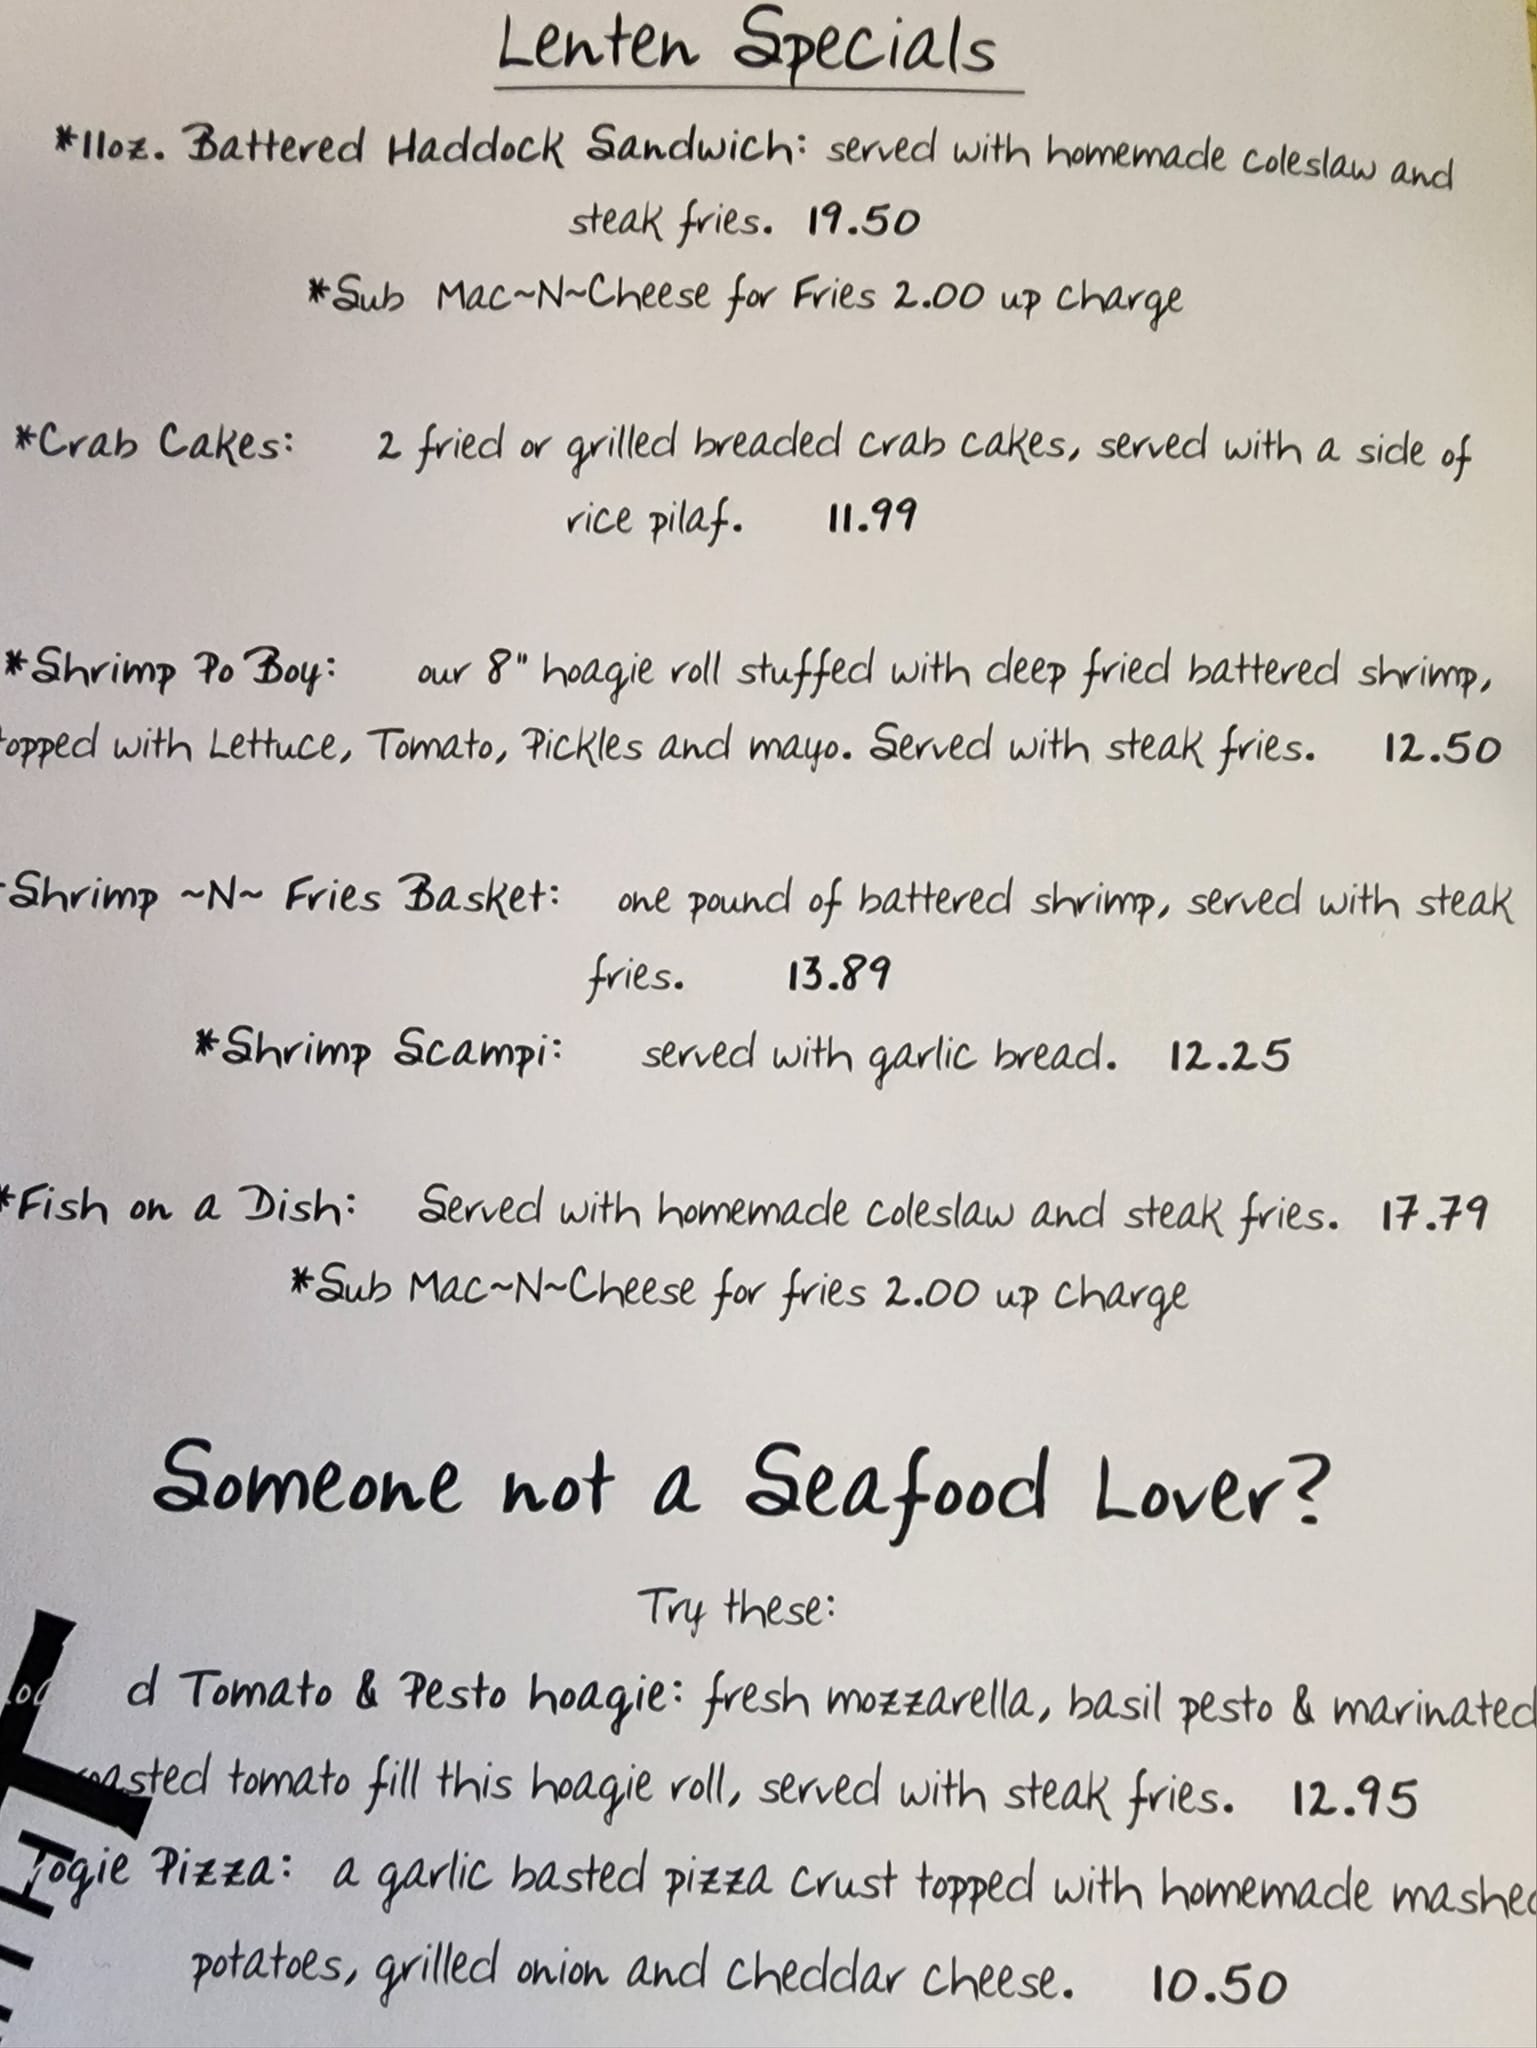 Lenten Specials
*11oz. Battered Haddock Sandwich: served with homemade coleslaw and
steak fries. 19.50
*Sub Mac~N~Cheese for Fries 2.00 up charge
*Crab Cakes: 2 fried or grilled breaded crab cakes, served with a side of
rice pilaf. 11.99
*Shrimp Po Boy: our 8" hoagie roll stuffed with deep fried battered shrimp,
topped with Lettuce, Tomato, Pickles and mayo. Served with steak fries. 12.50
Shrimp ~N~ Fries Basket: one pound of battered shrimp, served with steak
fries. 13.89
*Shrimp Scampi: served with garlic bread. 12.25
*Fish on a Dish: Served with homemade coleslaw and steak fries. 17.79
*Sub Mac~N~Cheese for fries 2.00 up charge
Someone not a Seafood Lover?
Try these:
d Tomato & Pesto hoagie: fresh mozzarella, basil pesto & marinated
oasted tomato fill this hoagie roll, served with steak fries. 12.95
ogie Pizza: a garlic basted pizza crust topped with homemade mashed
potatoes, grilled onion and cheddar cheese. 10.50